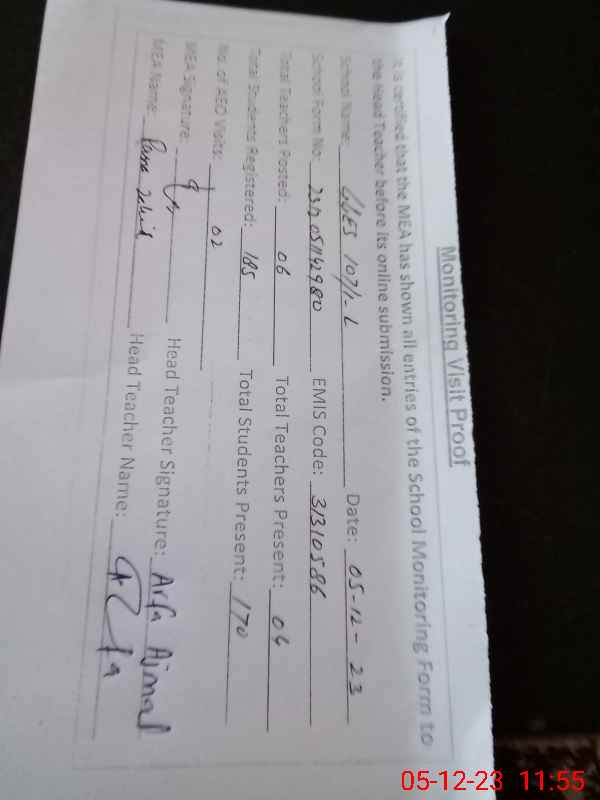 Monitoring Visit Proof
It is certified that the MEA has shown all entries of the School Monitoring Form to
the Head Teacher before its online submission.
School Name: GGES 107/1-L Date: 05-12-23
School Form No: EMIS Code: 31310586
Total Teachers Posted: 06 Total Teachers Present: 06
Total Students Registered: 185 Total Students Present: 170
No. of AEO Visits: 02
MEA Signature: Head Teacher Signature: Arfa Ajmal
MEA Name: Head Teacher Name:
05-12-23 11:55